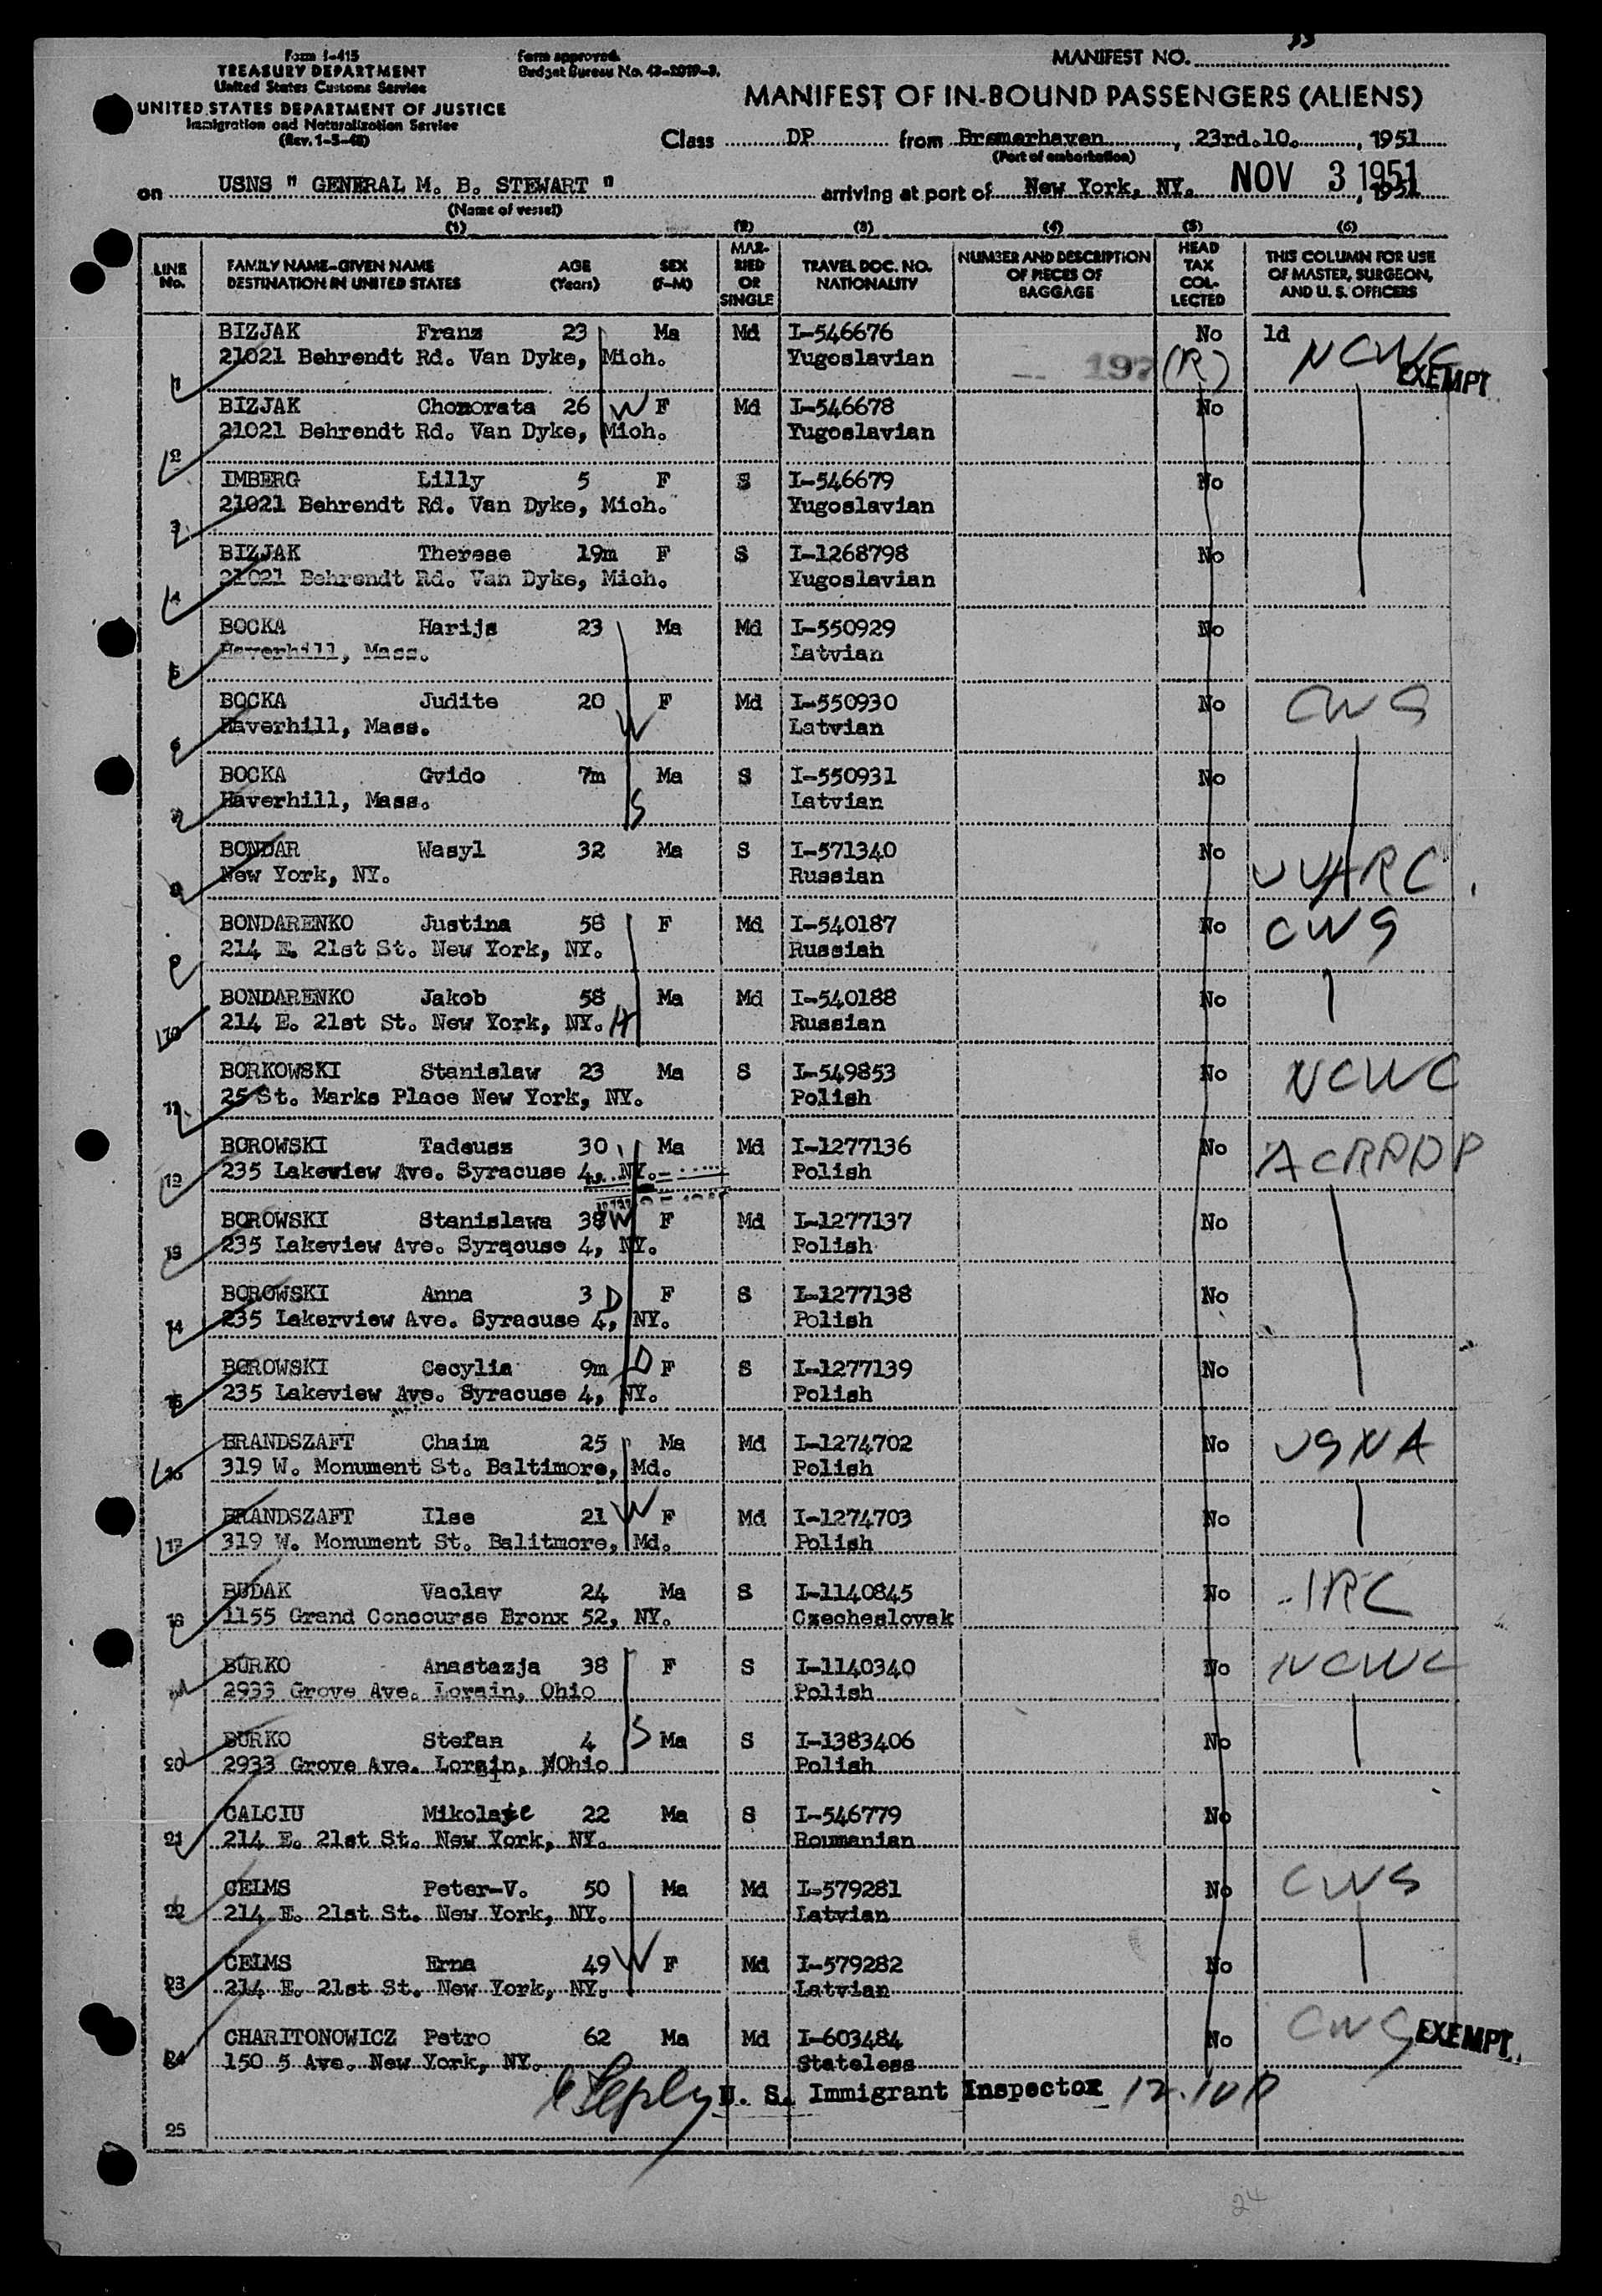 33
Form I-415
TREASURY DEPARTMENT
United States Customs Service
UNITED STATES DEPARTMENT OF JUSTICE
Immigration and Naturalization Service
(Rev. 1-3-48)
Form approved.
Budget Bureau No. 43-2019-3.
MANIFEST NO.
MANIFEST OF IN-BOUND PASSENGERS (ALIENS)
Class DP from Bremerhaven, 23rd.10., 1951
(Port of embarkation)
on USNS " GENERAL M. B. STEWART " arriving at port of New York, NY. NOV 3 1951, 1951
(Name of vessel)
(1) (2) (3) (4) (5) (6)
LINE No. FAMILY NAME-GIVEN NAME DESTINATION IN UNITED STATES AGE (Years) SEX (F-M) MARRIED OR SINGLE TRAVEL DOC. NO. NATIONALITY NUMBER AND DESCRIPTION OF PIECES OF BAGGAGE HEAD TAX COLLECTED THIS COLUMN FOR USE OF MASTER, SURGEON, AND U. S. OFFICERS
BIZJAK Franz 23 Ma Md I-546676 No 1d
1 21021 Behrendt Rd. Van Dyke, Mich. Yugoslavian 197 (R) NCWC EXEMPT
BIZJAK Chonorata 26 W F Md I-546678 No
2 21021 Behrendt Rd. Van Dyke, Mich. Yugoslavian
IMBERG Lilly 5 F S I-546679 No
3 21021 Behrendt Rd. Van Dyke, Mich. Yugoslavian
BIZJAK Therese 19m F S I-1268798 No
4 21021 Behrendt Rd. Van Dyke, Mich. Yugoslavian
BOCKA Harijs 23 Ma Md I-550929 No
5 Haverhill, Mass. Latvian
BOCKA Judite 20 W F Md I-550930 No CWS
6 Haverhill, Mass. Latvian
BOCKA Gvido 7m S Ma S I-550931 No
7 Haverhill, Mass. Latvian
BONDAR Wasyl 32 Ma S I-571340 No
8 New York, NY. Russian UUARC
BONDARENKO Justina 58 F Md I-540187 No CWS
9 214 E. 21st St. New York, NY. Russian
BONDARENKO Jakob 58 Ma Md I-540188 No
10 214 E. 21st St. New York, NY. H Russian
BORKOWSKI Stanislaw 23 Ma S I-549853 No NCWC
11 25 St. Marks Place New York, NY. Polish
BOROWSKI Tadeusz 30 Ma Md I-1277136 No ACRPDP
12 235 Lakewiew Ave. Syracuse 4, NY. Polish
BOROWSKI Stanislawa 38 W F Md I-1277137 No
13 235 Lakeview Ave. Syracuse 4, NY. Polish
BOROWSKI Anna 3 D F S I-1277138 No
14 235 Lakerview Ave. Syracuse 4, NY. Polish
BOROWSKI Cecylia 9m D F S I-1277139 No
15 235 Lakeview Ave. Syracuse 4, NY. Polish
BRANDSZAFT Chaim 25 Ma Md I-1274702 No USNA
16 319 W. Monument St. Baltimore, Md. Polish
BRANDSZAFT Ilse 21 W F Md I-1274703 No
17 319 W. Monument St. Balitmore, Md. Polish
BUDAK Vaclav 24 Ma S I-1140845 No IRC
18 1155 Grand Concourse Bronx 52, NY. Czecheslovak
BURKO Anastazja 38 F S I-1140340 No NCWC
2933 Grove Ave. Lorain, Ohio Polish
BURKO Stefan 4 S Ma S I-1383406 No
20 2933 Grove Ave. Lorain, Ohio Polish
CALCIU Mikolaje 22 Ma S I-546779 No
21 214 E. 21st St. New York, NY. Roumanian
CELMS Peter-V. 50 Ma Md I-579281 No CWS
22 214 E. 21st St. New York, NY. Latvian
CELMS Erna 49 W F Md I-579282 No
23 214 E. 21st St. New York, NY. Latvian
CHARITONOWICZ Petro 62 Ma Md I-603484 No CWS EXEMPT
24 150 5 Ave. New York, NY. Stateless
U. S. Immigrant Inspector 12.10 P
25
24